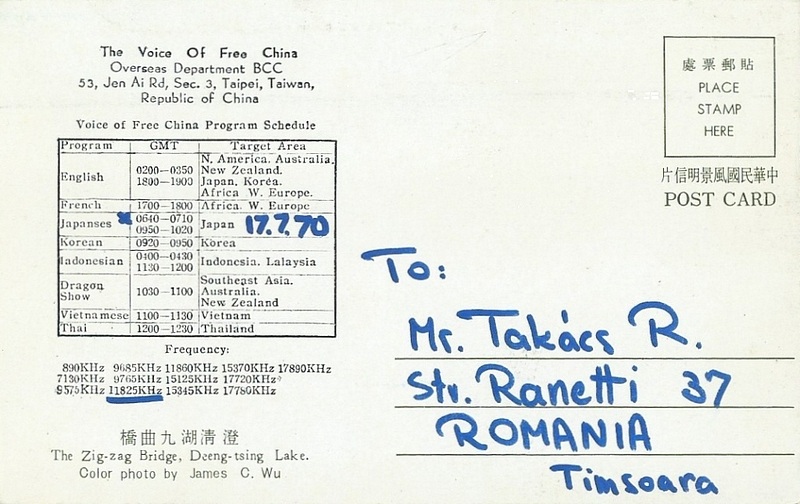 The Voice Of Free China
Overseas Department BCC
53, Jen Ai Rd, Sec. 3, Taipei, Taiwan,
Republic of China
Voice of Free China Program Schedule
Program GMT Target Area
English 0200—0350 1800—1900 N. America. Australia. New Zealand. Japan, Korea. Africa W. Europe.
French 1700—1800 Africa. W. Europe
Japanses x 0640—0710 0950—1020 Japan 17.7.70
Korean 0920—0950 Korea
Iadonesian 0400—0430 1130—1200 Indonesia. Lalaysia
Dragon Show 1030—1100 Southeast Asia. Australia. New Zealand
Vietnamese 1100—1130 Vietnam
Thai 1200—1230 Thailand
Frequency:
890KHz 9685KHz 11860KHz 15370KHz 17890KHz
7130KHz 9765KHz 15125KHz 17720KHz
9575KHz 11825KHz 15345KHz 17780KHz
橋曲九湖清澄
The Zig-zag Bridge, Deeng-tsing Lake.
Color photo by James C. Wu
處票郵貼
PLACE
STAMP
HERE
片信明景風國民華中
POST CARD
To:
Mr. Takács R.
Str. Ranetti 37
ROMANIA
Timsoara